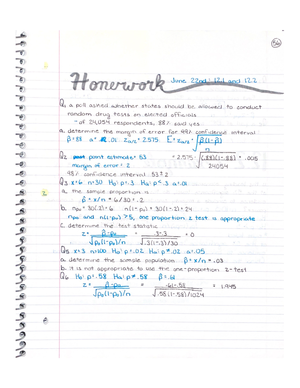 Homework June 22nd 12.1 and 12.2
Q1 a poll asked whether states should be allowed to conduct
random drug tests on elected officials
- of 24,054 respondents, 88% said yes
a. determine the margin of error for 99% confidence interval
p̂=.88 α=.01 Zα/2=2.575 E=Zα/2 √p̂(1-p̂)/n
Q2 point estimate=.53 = 2.575·√(.88)(1-.88)/24054 = .005
margin of error=.2
98% confidence interval .53±2
Q3 x=6 n=30 H₀:p=.3 Hₐ:p<.3 α=.01
a. the sample proportion is
p̂=x/n=6/30=.2
b. np₀=30(.2)=6 n(1-p₀)=30(1-.2)=24
np₀ and n(1-p₀)>5, one proportion z test is appropriate
c. determine the test statistic
z= p̂-p₀/√p₀(1-p₀)/n = .3-.3/√.3(1-.3)/30 = 0
Q5 x=3 n=100 H₀:p=.02 Hₐ:p≠.02 α=.05
a. determine the sample population p̂=x/n=.03
b. it is not appropriate to use the one-proportion z-test
Q6 H₀:p=.58 Hₐ:p≠.58 p̂=.61
z= p̂-p₀/√p₀(1-p₀)/n = .61-.58/√.58(1-.58)/1024 = 1.945